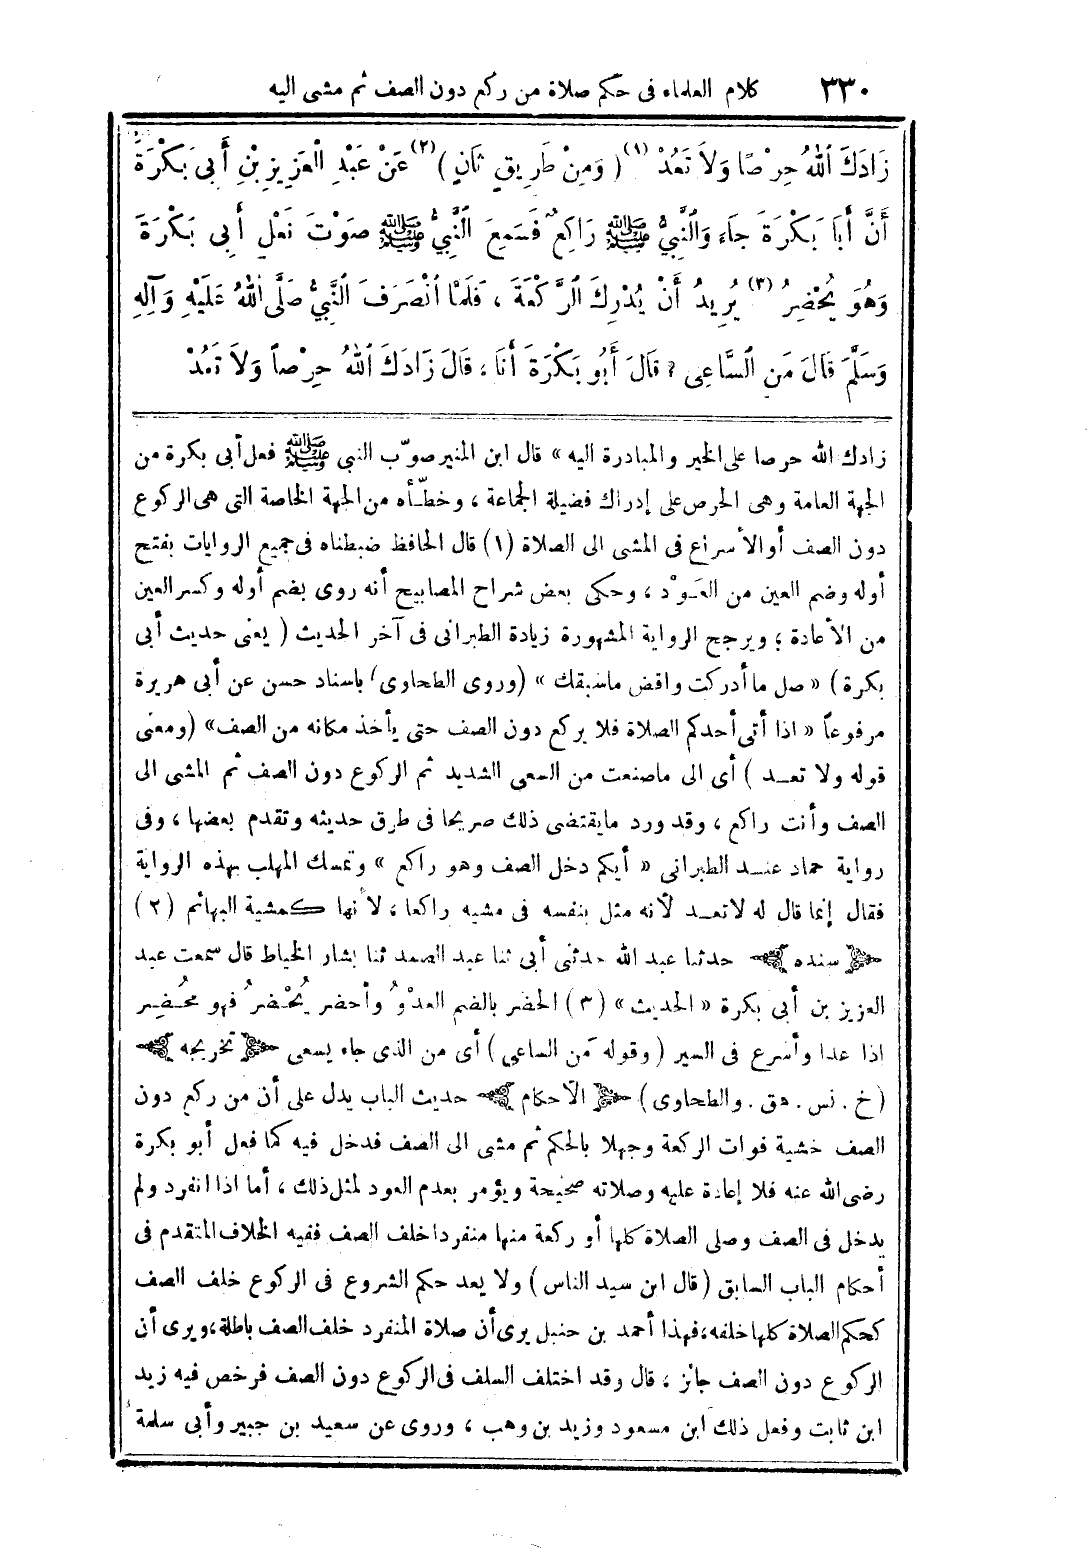 ٣٣٠ كلام العلماء فى حكم صلاة من ركع دون الصف ثم مشى اليه
زَادَكَ اللهُ حِرْصًا وَلاَ تَعُدْ (١) ( وَمِنْ طَرِيقٍ ثَانٍ ) (٢) عَنْ عَبْدِ الْعَزِيزِ بْنِ أَبِى بَكْرَةَ
أَنَّ أَبَا بَكْرَةَ جَاءَ وَالنَّبِىُّ ﷺ رَاكِعٌ فَسَمِعَ النَّبِىُّ ﷺ صَوْتَ نَعْلِ أَبِى بَكْرَةَ
وَهُوَ يُحْضِرُ (٣) يُرِيدُ أَنْ يُدْرِكَ الرَّكْعَةَ ، فَلَمَّا انْصَرَفَ النَّبِىُّ صَلَّى اللهُ عَلَيْهِ وَآلِهِ
وَسَلَّمَ قَالَ مَنِ السَّاعِى ؟ قَالَ أَبُو بَكْرَةَ أَنَا ، قَالَ زَادَكَ اللهُ حِرْصاً وَلاَ تَعُدْ
زادك الله حرصا على الخير والمبادرة اليه » قال ابن المنير صوّب النبى ﷺ فعل أبى بكرة من
الجهة العامة وهى الحرص على إدراك فضيلة الجماعة ، وخطّأه من الجهة الخاصة التى هى الركوع
دون الصف أو الأسراع فى المشى الى الصلاة (١) قال الحافظ ضبطناه فى جميع الروايات بفتح
أوله وضم العين من العَوْد ، وحكى بعض شراح المصابيح أنه روى بضم أوله وكسر العين
من الأعادة ؛ ويرجح الرواية المشهورة زيادة الطبرانى فى آخر الحديث ( يعنى حديث أبى
بكرة ) « صل ما أدركت واقض ماسبقك » (وروى الطحاوى) باسناد حسن عن أبى هريرة
مرفوعاً « اذا أتى أحدكم الصلاة فلا يركع دون الصف حتى يأخذ مكانه من الصف» (ومعنى
قوله ولا تعد ) أى الى ماصنعت من السعى الشديد ثم الركوع دون الصف ثم المشى الى
الصف وأنت راكع ، وقد ورد مايقتضى ذلك صريحا فى طرق حديثه وتقدم بعضها ، وفى
رواية حماد عند الطبرانى « أيكم دخل الصف وهو راكع » وتمسك المهلب بهذه الرواية
فقال إنما قال له لاتعد لأنه مثل بنفسه فى مشيه راكعا ، لأنها كمشية البهائم (٢)
سنده حدثنا عبد الله حدثنى أبى ثنا عبد الصمد ثنا بشار الخياط قال سمعت عبد
العزيز بن أبى بكرة « الحديث » (٣) الحضر بالضم العدْوُ وأحضر يُحْضرُ فهو مُحْضِر
اذا عدا وأسرع فى السير ( وقوله مَن الساعى ) أى من الذى جاء يسعى تخريجه
(خ . نس . هق . والطحاوى) الأحكام حديث الباب يدل على أن من ركع دون
الصف خشية فوات الركعة وجهلا بالحكم ثم مشى الى الصف فدخل فيه كما فعل أبو بكرة
رضى الله عنه فلا إعادة عليه وصلاته صحيحة ويؤمر بعدم العود لمثل ذلك ، أما اذا انفرد ولم
يدخل فى الصف وصلى الصلاة كلها أو ركعة منها منفردا خلف الصف ففيه الخلاف المتقدم فى
أحكام الباب السابق (قال ابن سيد الناس) ولا يعد حكم الشروع فى الركوع خلف الصف
كحكم الصلاة كلها خلفه، فهذا أحمد بن حنبل يرى أن صلاة المنفرد خلف الصف باطلة، ويرى أن
الركوع دون الصف جائز ، قال وقد اختلف السلف فى الركوع دون الصف فرخص فيه زيد
ابن ثابت وفعل ذلك ابن مسعود وزيد بن وهب ، وروى عن سعيد بن جبير وأبى سلمة